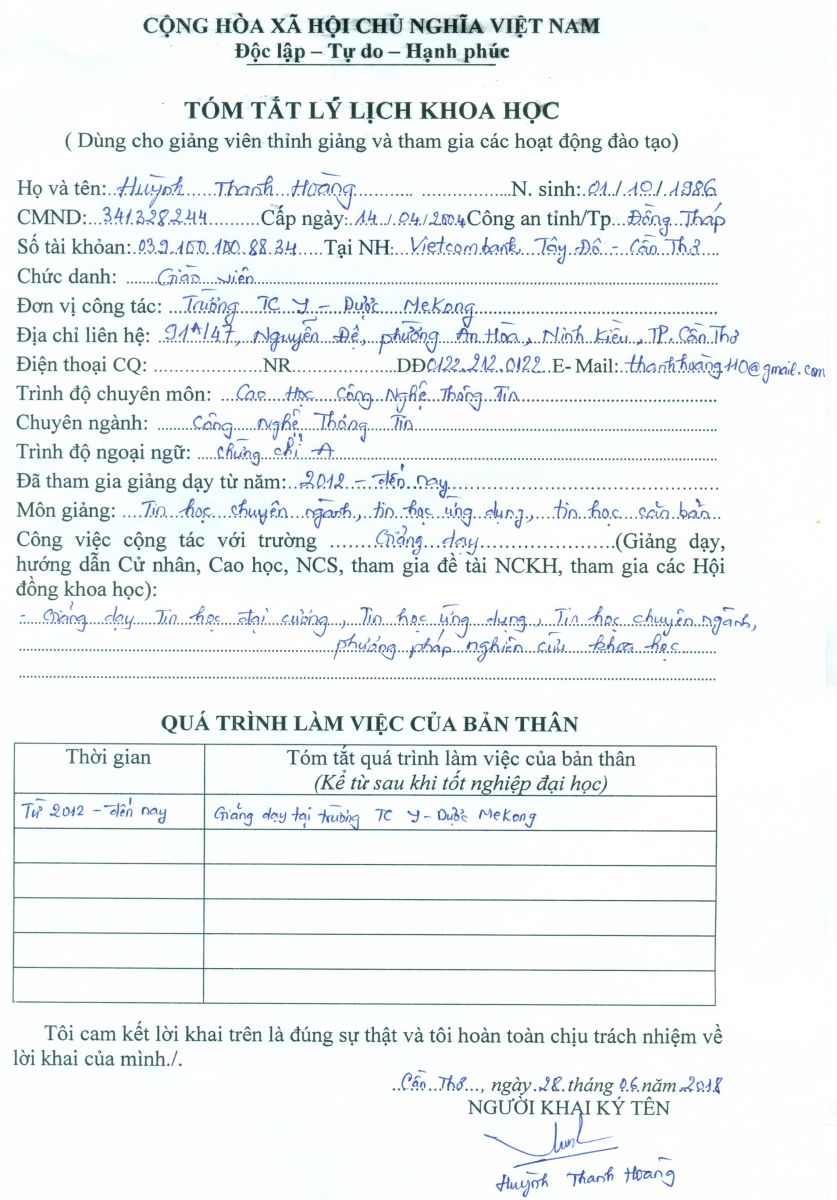 CỘNG HÒA XÃ HỘI CHỦ NGHĨA VIỆT NAM
Độc lập – Tự do – Hạnh phúc
TÓM TẮT LÝ LỊCH KHOA HỌC
( Dùng cho giảng viên thỉnh giảng và tham gia các hoạt động đào tạo)
Họ và tên: Huỳnh Thanh Hoàng N. sinh: 01/10/1986
CMND: 341328244 Cấp ngày: 14/04/2004 Công an tỉnh/Tp Đồng Tháp
Số tài khỏan: 039.100.100.88.34 Tại NH: Vietcombank Tây Đô - Cần Thơ
Chức danh: Giáo viên
Đơn vị công tác: Trường TC Y - Dược MeKong
Địa chỉ liên hệ: 91A/47, Nguyễn Đệ, phường An Hòa, Ninh Kiều, TP. Cần Thơ
Điện thoại CQ: NR DĐ 0122.212.0122 E- Mail: thanhhoang110@gmail.com
Trình độ chuyên môn: Cao Học Công Nghệ Thông Tin
Chuyên ngành: Công Nghệ Thông Tin
Trình độ ngoại ngữ: chứng chỉ A
Đã tham gia giảng dạy từ năm: 2012 - đến nay
Môn giảng: Tin học chuyên ngành, tin học ứng dụng, tin học căn bản
Công việc cộng tác với trường Giảng dạy (Giảng dạy,
hướng dẫn Cử nhân, Cao học, NCS, tham gia đề tài NCKH, tham gia các Hội
đồng khoa học):
- Giảng dạy Tin học đại cương, Tin học ứng dụng, Tin học chuyên ngành,
phương pháp nghiên cứu khoa học
QUÁ TRÌNH LÀM VIỆC CỦA BẢN THÂN
Thời gian Tóm tắt quá trình làm việc của bản thân
(Kể từ sau khi tốt nghiệp đại học)
Từ 2012 - đến nay Giảng dạy tại trường TC Y - Dược MeKong
Tôi cam kết lời khai trên là đúng sự thật và tôi hoàn toàn chịu trách nhiệm về
lời khai của mình./.
Cần Thơ, ngày 28 tháng 06 năm 2018
NGƯỜI KHAI KÝ TÊN
Huỳnh Thanh Hoàng